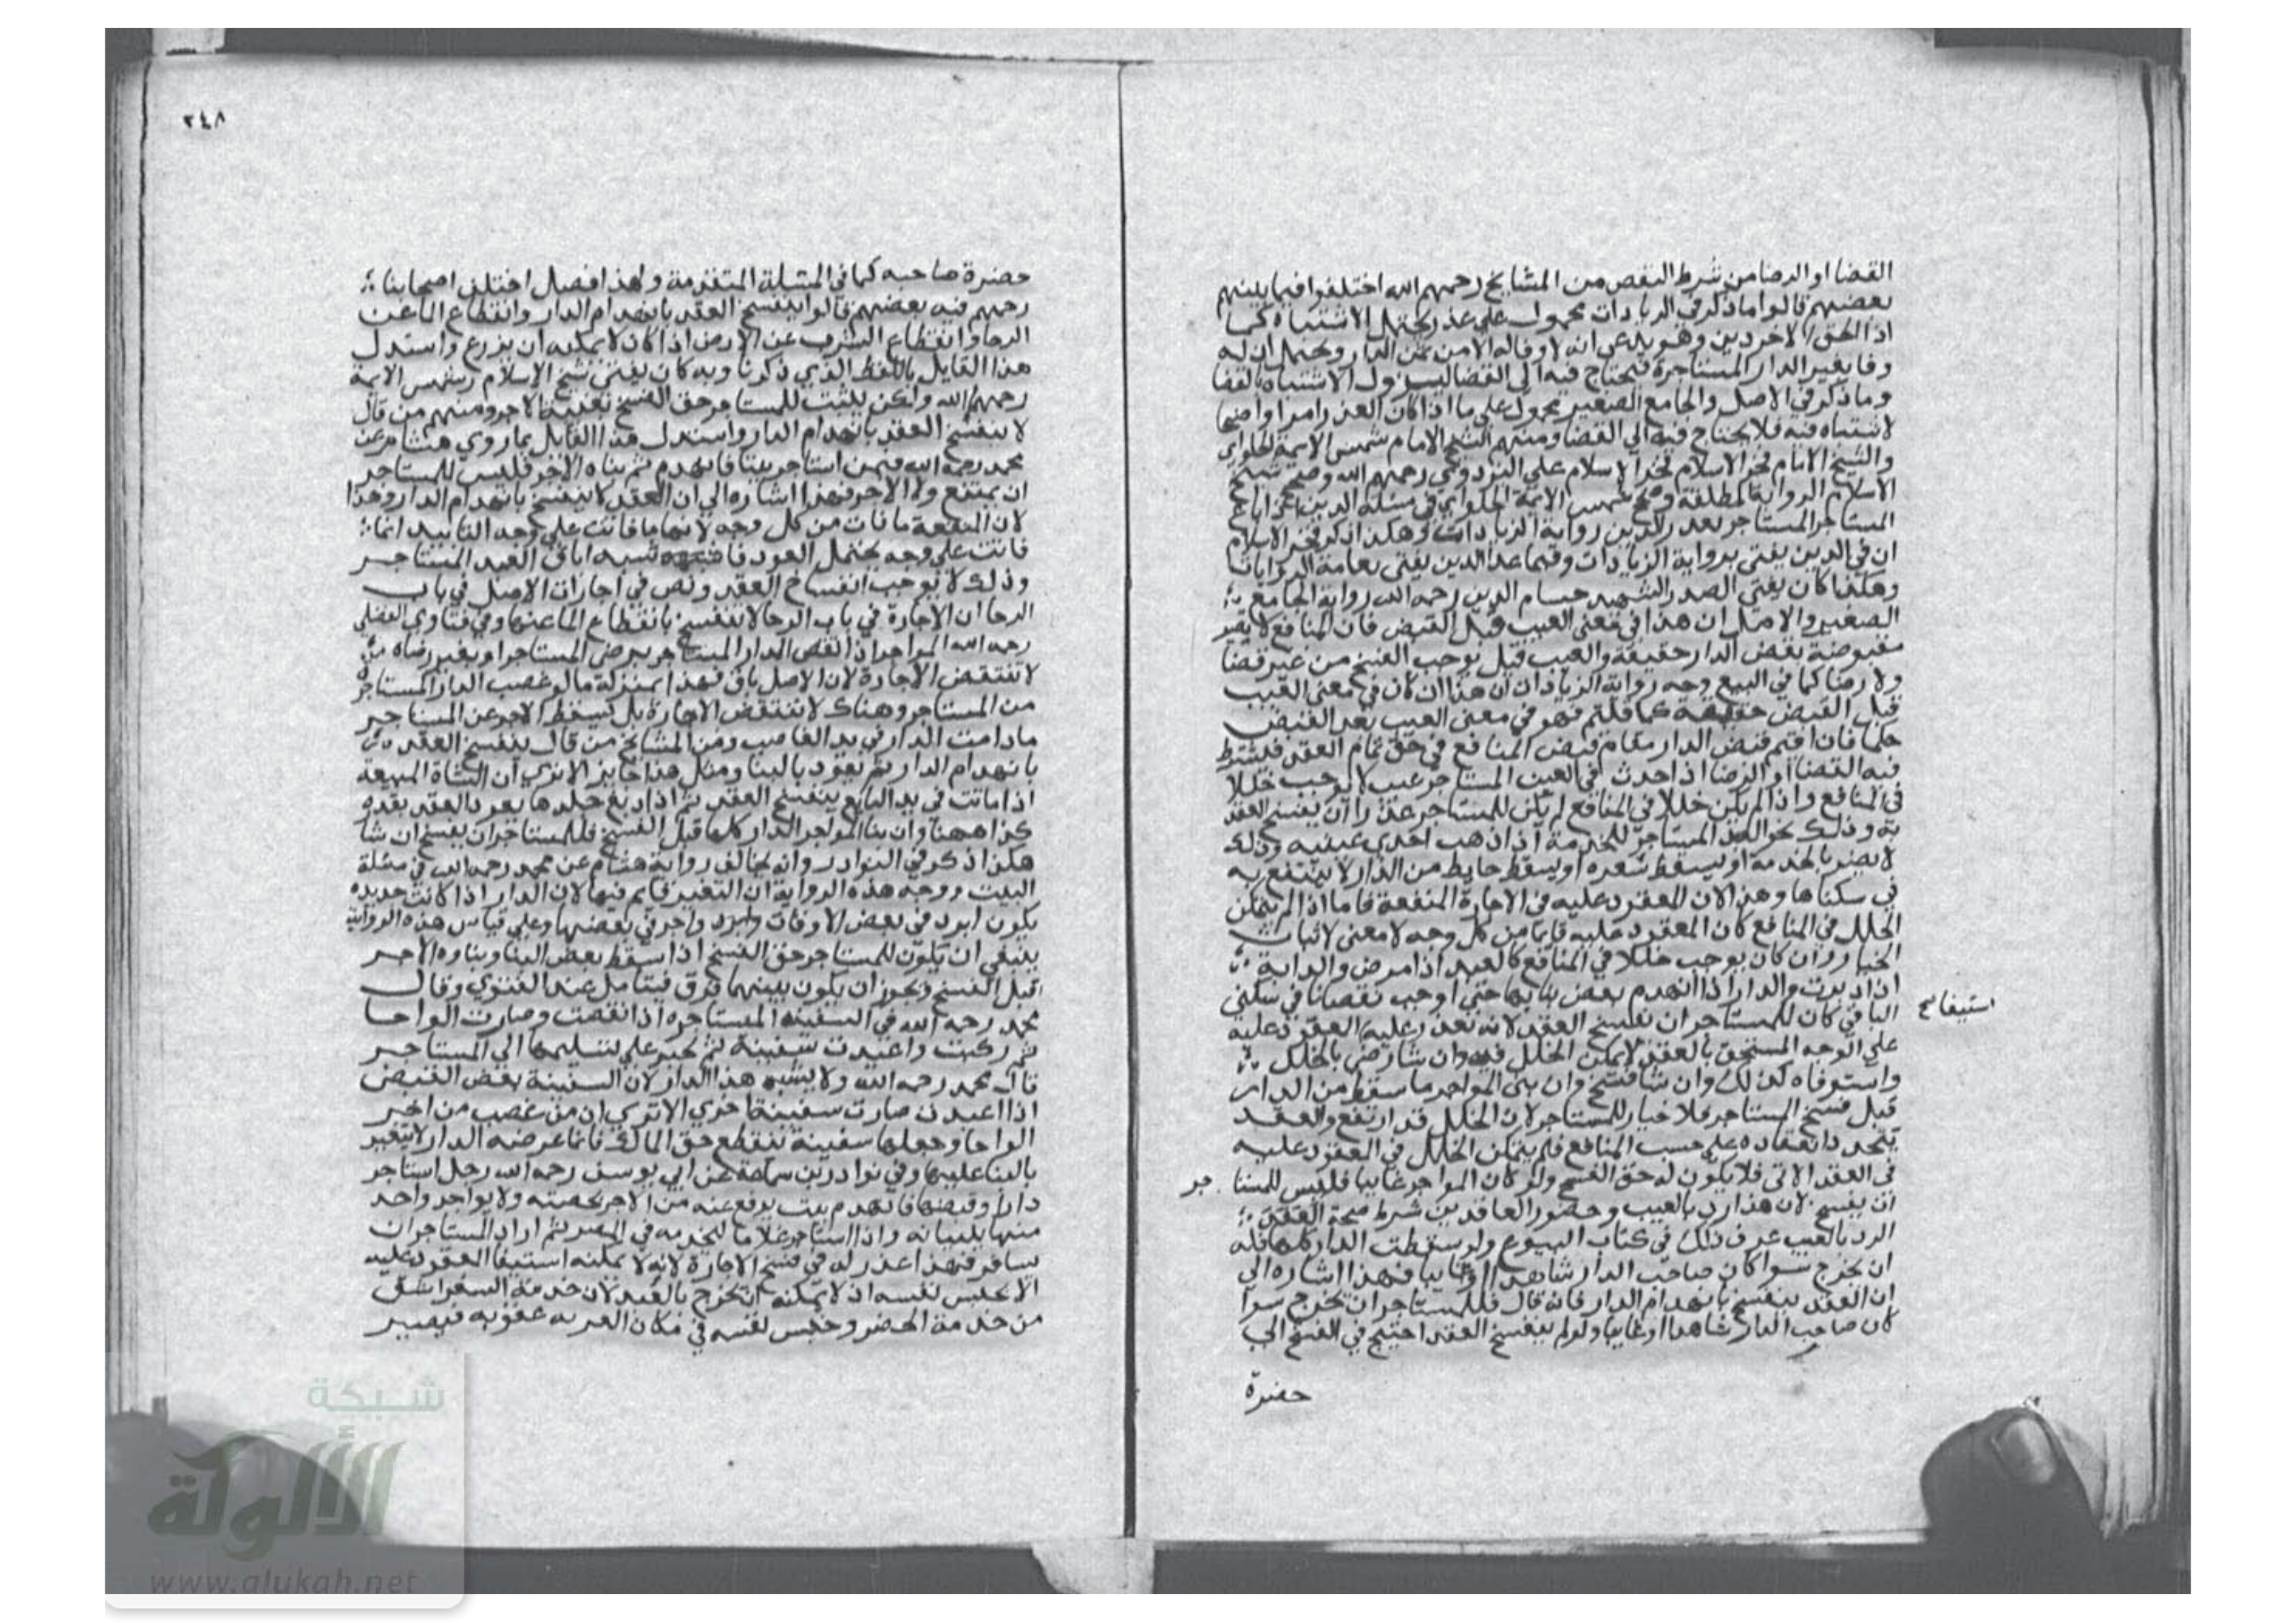 القضا او الرضا من شرط النقص من المشايخ رحمهم الله اختلفوا فيما بينهم
بعضهم قالوا ما ذكر في الزيادات محمول على عذر يحتمل الاشتباه كما
اذا لحق الاخر دين وهو يدعي انه لا وفا له الا من ثمن الدار ويحتمل ان له
وفا بغير الدار المستاجرة فيحتاج فيه الى القضا ليزول الاشتباه بالقضا
وما ذكر في الاصل والجامع الصغير محمول على ما اذا كان العذر امرا واضحا
لا شتباه فيه فلا يحتاج فيه الى القضا ومنهم الشيخ الامام شمس الايمة الحلواي
والشيخ الامام فخر الاسلام علي البزدوي رحمهم الله وصحح شيخ
الاسلام الرواية المطلقة وصحح شمس الايمة الحلواي في مسئلة الدين اعني اذا باع
المستاجر المستاجر بعذر الدين رواية الزيادات وهكذا ذكر فخر الاسلام
ان في الدين يفتى برواية الزيادات وفيما عدا الدين يفتى بعامة الروايات
وهكذا كان يفتي الصدر الشهيد حسام الدين رحمه الله رواية الجامع
الصغير والاصل ان هذا في معنى العيب قبل القبض فان المنافع لا تصير
مقبوضة بقبض الدار حقيقة والعيب قبل يوجب الفسخ من غير قضا
ولا رضا كما في البيع وجه رواية الزيادات ان هذا ان كان في معنى العيب
قبل القبض حقيقة كما قلتم فهو في معنى العيب بعد القبض
حكما فان اقيم قبض الدار مقام قبض المنافع في حق تمام العقد فيشترط
فيه القضا او الرضا اذا حدث في العين المستاجر عيب لا يوجب خللا
في المنافع واذا لم يكن خللا في المنافع لم يكن للمستاجر عذرا ان يفسخ العقد
به وذلك نحو العبد المستاجر للخدمة اذا ذهب احدى عينيه وذلك
لا يضر بالخدمة او يسقط شعره او يسقط حايط من الدار لا ينتفع به
في سكناها وهذا لان المعقود عليه في الاجارة المنفعة فاما اذا لم يتمكن
الخلل في المنافع كان المعقود عليه قايما من كل وجه لا معنى لاثبات
الخيار وان كان يوجب خللا في المنافع كالعبد اذا مرض والدابة
اذا دبرت والدار اذا انهدم بعض بنايها حتى اوجب نقصانا في سكنى
الباقي كان للمستاجر ان يفسخ العقد لانه تعذر عليه المعقود عليه
استيفا صح
على الوجه المستحق بالعقد لا يمكن الخلل فيه وان شا رضي بالخلل
واستوفاه كذلك وان شا فسخ وان بنى المواجر ما سقط من الدار
قبل فسخ المستاجر فلا خيار للمستاجر لان الخلل قد ارتفع والعقد
يتجدد انعقاده على حسب المنافع فلم يتمكن الخلل في المعقود عليه
في العقد الاتي فلا يكون له حق الفسخ ولو كان المواجر غايبا فليس للمستاجر
ان يفسخ لان هذا رد بالعيب وحضور العاقدين شرط صحة العقد
الرد بالعيب عرف ذلك في كتاب البيوع ولو سقطت الدار كلها فله
ان يخرج سوا كان صاحب الدار شاهدا او غايبا فهذا اشاره الى
ان العقد ينفسخ بانهدام الدار فانه قال فللمستاجر ان يخرج سوا
كان صاحب الدار شاهدا او غايبا ولو لم ينفسخ العقد احتيج في الفسخ الى
حضرة
٢٤٨
حضرة صاحبه كما في المسئلة المتقدمة وهذا فصل اختلف اصحابنا
رحمهم فيه بعضهم قالوا ينفسخ العقد بانهدام الدار وانقطاع الما عن
الرحا وانقطاع الشرب عن الارض اذا كان لا يمكنه ان يزرع واستدل
هذا القايل باللفظ الذي ذكرنا وبه كان يفتي شيخ الاسلام وشمس الايمة
رحمهم الله ولكن يثبت للمستاجر حق الفسخ الاجر ومنهم من قال
لا ينفسخ العقد بانهدام الدار واستدل هذا القايل بما روي هشام عن
محمد رحمه الله فيمن استاجر بيتا فانهدم ثم بناه الاخر فليس للمستاجر
ان يمتنع ولا الاجر فهذا اشاره الى ان العقد لا ينفسخ بانهدام الدار وهذا
لان المنفعة ما فات من كل وجه لانها ما فاتت على وجه التابيد انما
فاتت على وجه يحتمل العود شبه اباق العبد المستاجر
وذلك لا يوجب انفساخ العقد ونص في اجارات الاصل في باب
الرحا ان الاجارة في باب الرحا لا تنفسخ بانقطاع الما عنها وفي فتاوي الفضلي
رحمه الله المواجر اذا نقص الدار المستاجر برضى المستاجر او بغير رضاه
لا تنتقض الاجارة لان الاصل باق فهذا بمنزلة ما لو غصب الدار المستاجر
من المستاجر وهناك لا تنتقض الاجارة بل يسقط الاجر عن المستاجر
مادامت الدار في يد الغاصب ومن المشايخ من قال ينفسخ العقد
بانهدام الدار ثم يعود بالبنا ومثل هذا جايز الا ترى ان الشاة المبيعة
اذا ماتت في يد البايع ينفسخ العقد ثم اذا دبغ جلدها يعود العقد بقدره
كذا ههنا وان بنا المواجر الدار كلها قبل الفسخ فللمستاجر ان يفسخ ان شا
هكذا ذكر في النوادر وانه يخالف رواية هشام عن محمد رحمه الله في مسئلة
البيت ووجه هذه الرواية ان التغير قايم فيها لان الدار اذا كانت جديده
يكون ابرد في بعض الاوقات واحر في بعضها وعلى قياس هذه الرواية
ينبغي ان يكون للمستاجر حق الفسخ اذا سقط بعض البنا وبناه الاجر
قبل الفسخ ويجوز ان يكون بينهما فرق فيتامل عند الفتوى وقال
محمد رحمه الله في السفينه المستاجره اذا نقضت وصارت الواحا
ثم ركبت واعيدت سفينة لم يجبر على تسليمها الى المستاجر
قال محمد رحمه الله ولا يشبه هذا الدار لان السفينة بعد القبض
اذا اعيدت صارت سفينة اخرى الا ترى ان من غصب من اخر
الواحا وجعلها سفينة ينقطع حق المالك فاما عرصه الدار لا يتغير
بالبنا عليها وفي نوادر بن سماعة عن ابي يوسف رحمه الله رجل استاجر
دارا وقبضها فانهدم بيت يرفع عنه من الاجر بحصته ولا يواجر واحد
منهما ببنيانه واذا استاجر غلاما ليخدمه في المصر ثم اراد المستاجر ان
سافر فهذا عذر له في فسخ الاجارة لانه لا يمكنه استيفا المعقود عليه
الا بحبس نفسه اذ لا يمكنه ان يخرج بالعبد لان خدمة السفر اشق
من خدمة الحضر وحبس نفسه في مكان عقوبه فيصير
شبكة
الألوكة
www.alukah.net